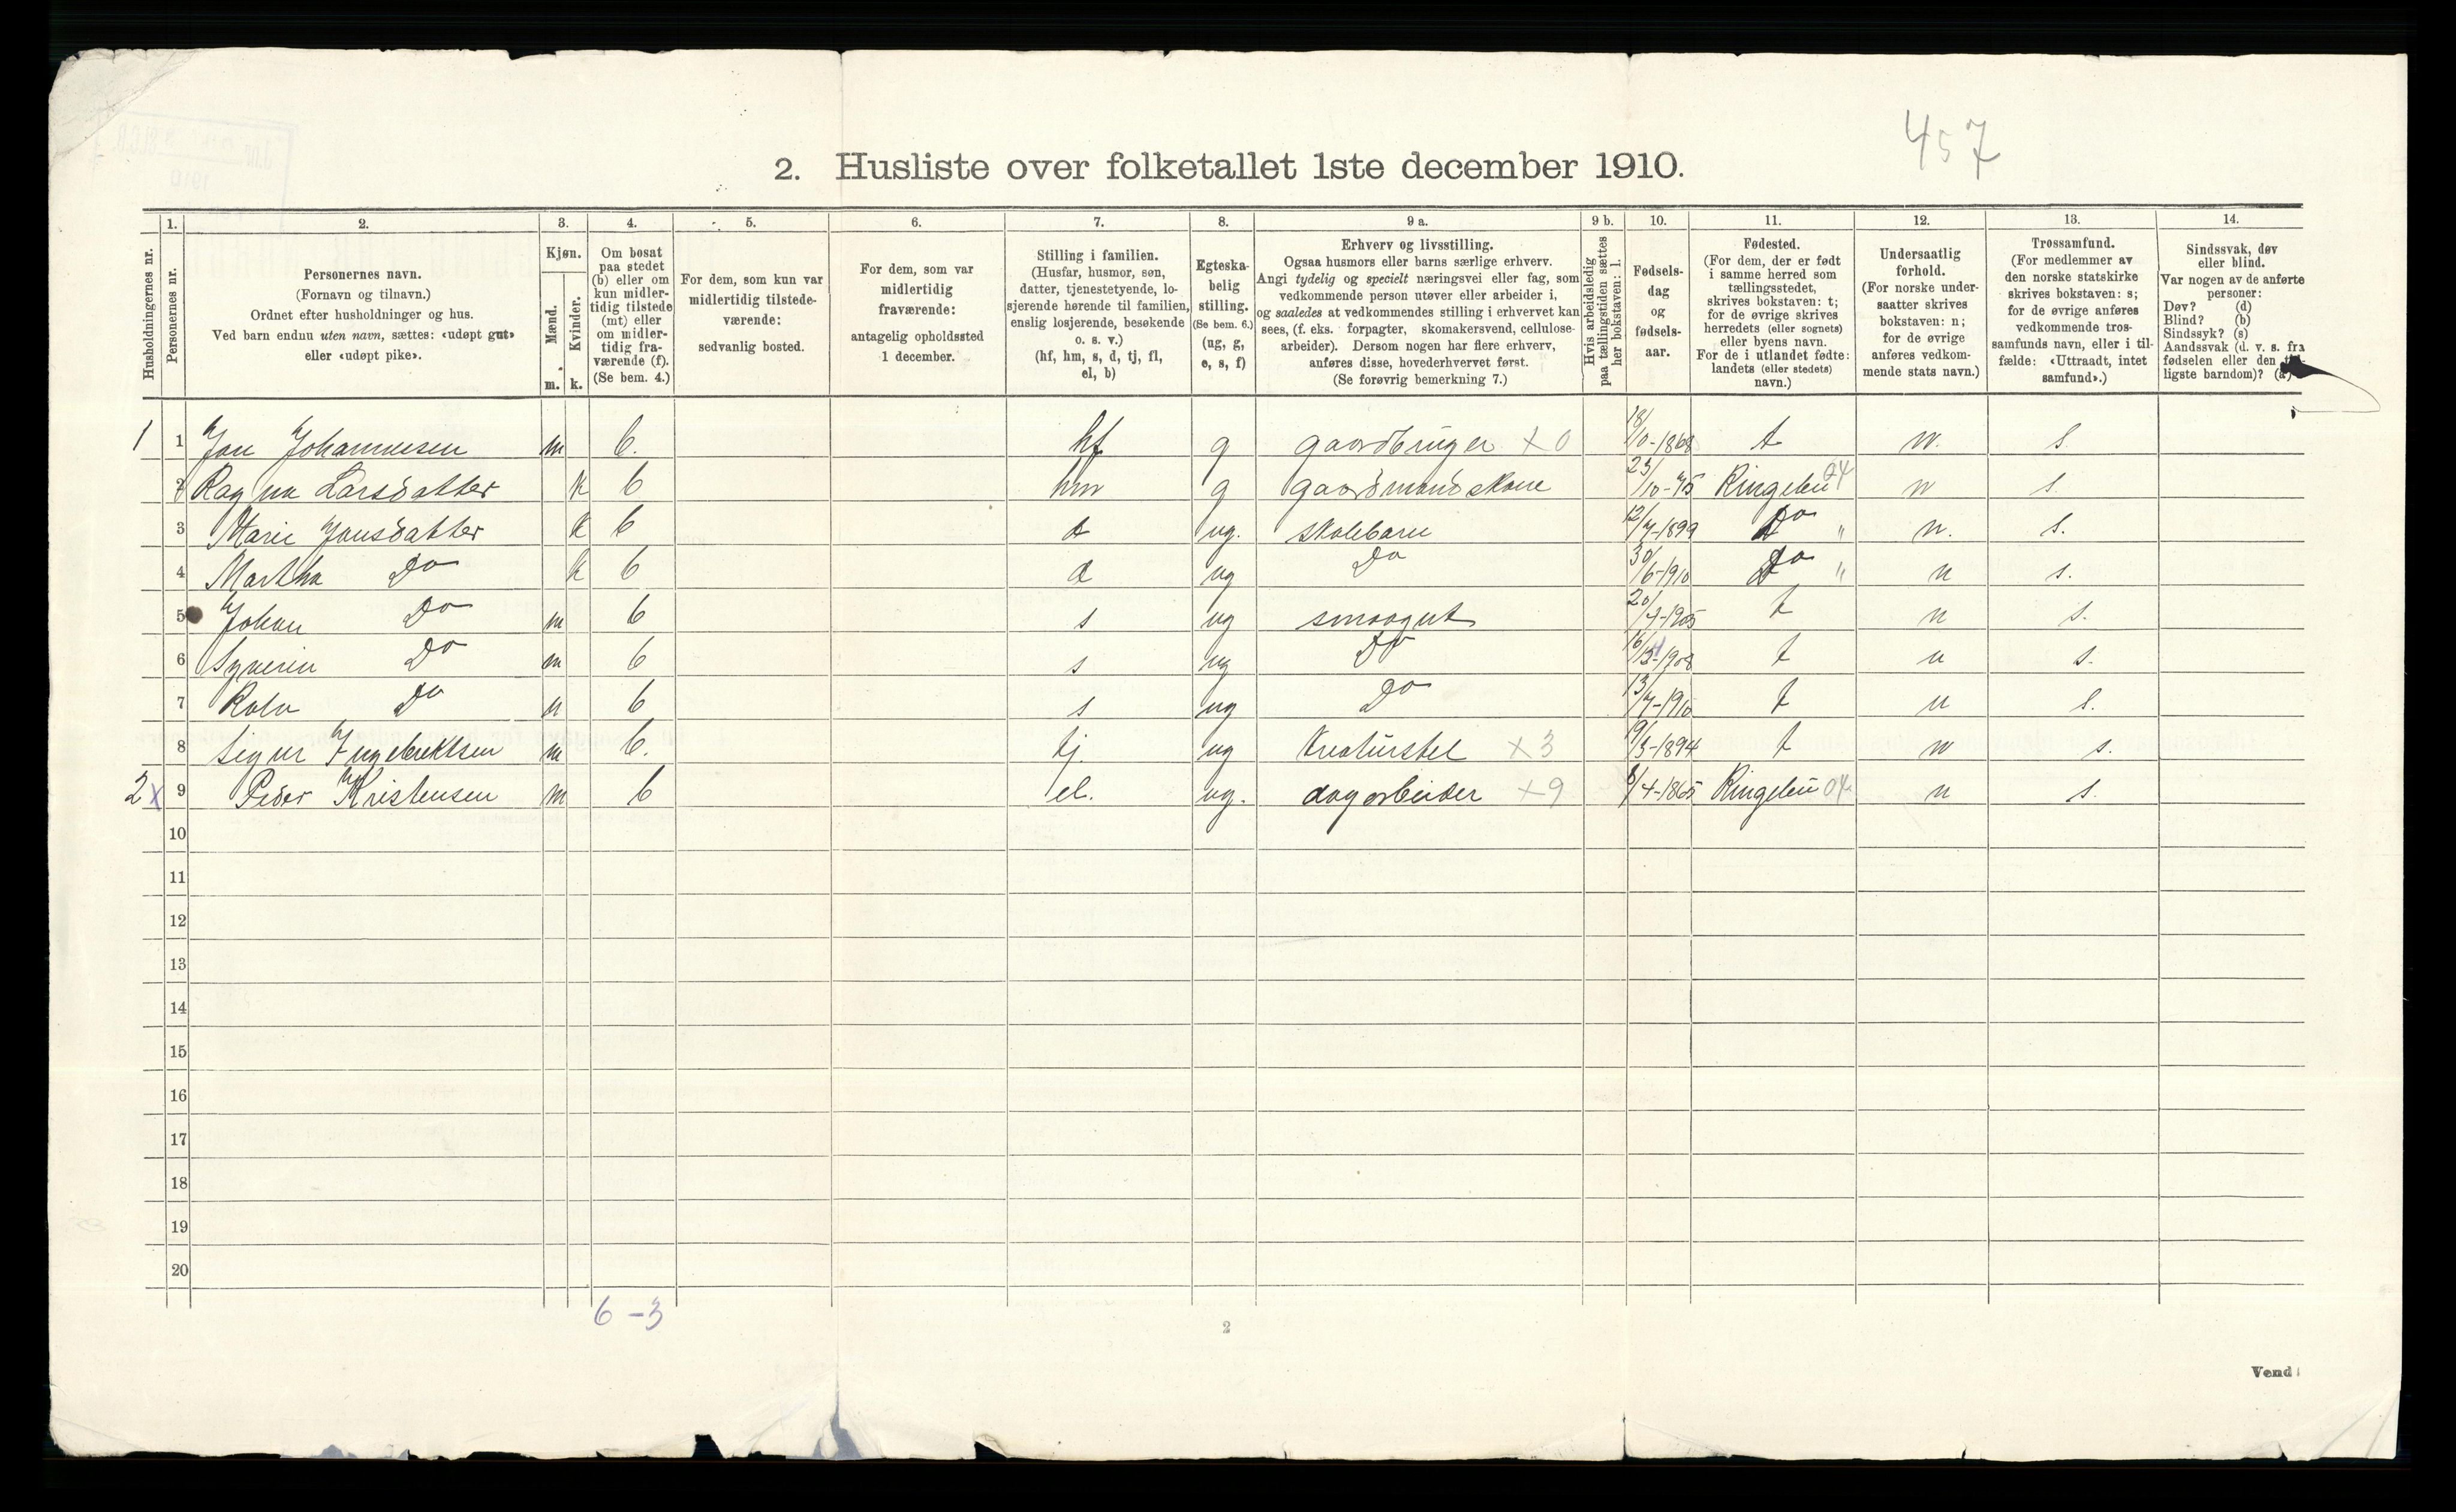 457
2. Husliste over folketallet 1ste december 1910.
Husholdningernes nr.
1.
Personernes nr.
2.
Personernes navn.
(Fornavn og tilnavn.)
Ordnet efter husholdninger og hus.
Ved barn endnu uten navn, sættes: «udøpt gut»
eller «udøpt pike».
3.
Kjøn.
Mænd.
Kvinder.
m. k.
4.
Om bosat
paa stedet
(b) eller om
kun midler-
tidig tilstede
(mt) eller
om midler-
tidig fra-
værende (f).
(Se bem. 4.)
5.
For dem, som kun var
midlertidig tilstede-
værende:
sedvanlig bosted.
6.
For dem, som var
midlertidig
fraværende:
antagelig opholdssted
1 december.
7.
Stilling i familien.
(Husfar, husmor, søn,
datter, tjenestetyende, lo-
sjerende hørende til familien,
enslig losjerende, besøkende
o. s. v.)
(hf, hm, s, d, tj, fl,
el, b)
8.
Egteska-
belig
stilling.
(Se bem. 6.)
(ug, g,
e, s, f)
9 a.
Erhverv og livsstilling.
Ogsaa husmors eller barns særlige erhverv.
Angi tydelig og specielt næringsvei eller fag, som
vedkommende person utøver eller arbeider i,
og saaledes at vedkommendes stilling i erhvervet kan
sees, (f. eks. forpagter, skomakersvend, cellulose-
arbeider). Dersom nogen har flere erhverv,
anføres disse, hovederhvervet først.
(Se forøvrig bemerkning 7.)
9 b.
Hvis arbeidsledig
paa tællingstiden sættes
her bokstaven: l.
10.
Fødsels-
dag
og
fødsels-
aar.
11.
Fødested.
(For dem, der er født
i samme herred som
tællingsstedet,
skrives bokstaven: t;
for de øvrige skrives
herredets (eller sognets)
eller byens navn.
For de i utlandet fødte:
landets (eller stedets)
navn.)
12.
Undersaatlig
forhold.
(For norske under-
saatter skrives
bokstaven: n;
for de øvrige
anføres vedkom-
mende stats navn.)
13.
Trossamfund.
(For medlemmer av
den norske statskirke
skrives bokstaven: s;
for de øvrige anføres
vedkommende tros-
samfunds navn, eller i til-
fælde: «Uttraadt, intet
samfund».)
14.
Sindssvak, døv
eller blind.
Var nogen av de anførte
personer:
Døv? (d)
Blind? (b)
Sindssyk? (s)
Aandssvak (d. v. s. fra
fødselen eller den
ligste barndom)? (a)
1 1 Jon Johannesen m b. hf g gaardbruger x0 18/10-1868 t n. s.
2 Ragna Larsdatter k b hm g gaardmandskone 23/10-75 Ringebu 04 n s.
3 Marie Jonsdatter k b d ug. skolebarn 12/7-1899 Do " n. s.
4 Martha Do k b d ug Do 30/6-1910 Do " n s.
5 Johan Do m b s ug smaagut 20/7-1905 t n s.
6 Syverin Do m b s ug Do 1908 t n s.
7 Rolv Do m b s ug Do 13/7-1910 t n s.
8 Sigur Ingebrektsen m b. tj. ug Kreaturstel x3 19/3-1894 t n s.
2 x 9 Peder Kristensen m b el. ug. dagarbeider x9 8/4-1865 Ringebu 04 n s.
10
11
12
13
14
15
16
17
18
19
20
6-3
2
Vend